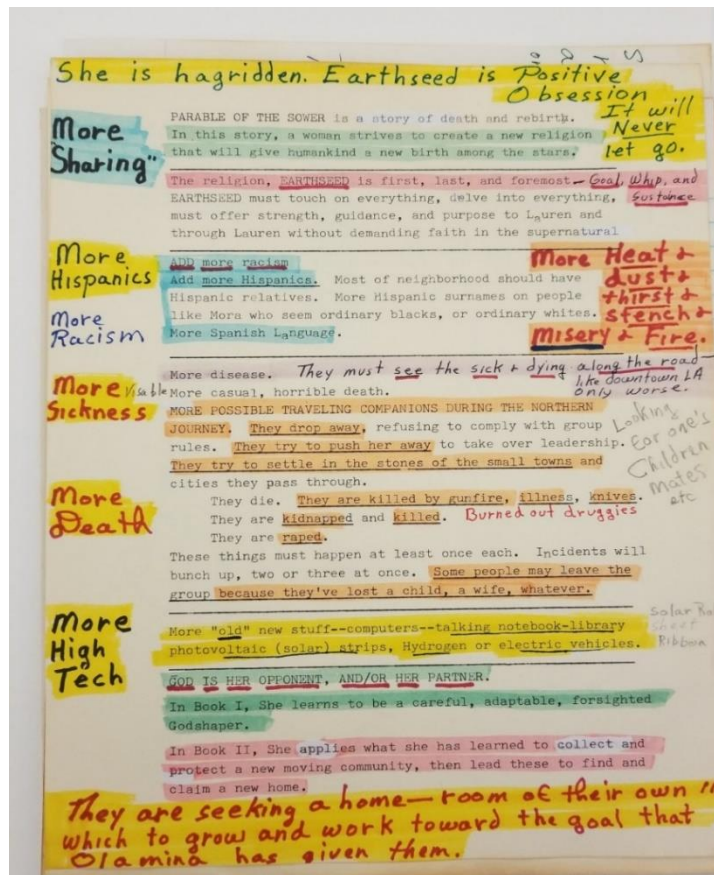 She is hagridden. Earthseed is Positive
Obsession
It will
Never
let go.
More
"Sharing"
PARABLE OF THE SOWER is a story of death and rebirth.
In this story, a woman strives to create a new religion
that will give humankind a new birth among the stars.
The religion, EARTHSEED is first, last, and foremost— Goal, Whip, and
EARTHSEED must touch on everything, delve into everything, Sustaince
must offer strength, guidance, and purpose to Lauren and
through Lauren without demanding faith in the supernatural
More
Hispanics
More
Racism
ADD more racism
Add more Hispanics. Most of neighborhood should have
Hispanic relatives. More Hispanic surnames on people
like Mora who seem ordinary blacks, or ordinary whites.
More Spanish Language.
More Heat &
dust &
thirst &
stench &
Misery & Fire.
More disease. They must see the sick & dying along the road—
like downtown LA
only worse.
More
Sickness
Visable More casual, horrible death.
MORE POSSIBLE TRAVELING COMPANIONS DURING THE NORTHERN
JOURNEY. They drop away, refusing to comply with group
rules. They try to push her away to take over leadership.
They try to settle in the stones of the small towns and
cities they pass through.
Looking
For one's
Children
mates
etc
More
Death
They die. They are killed by gunfire, illness, knives.
They are kidnapped and killed. Burned out druggies
They are raped.
These things must happen at least once each. Incidents will
bunch up, two or three at once. Some people may leave the
group because they've lost a child, a wife, whatever.
More
High
Tech
More "old" new stuff--computers--talking notebook-library
photovoltaic (solar) strips, Hydrogen or electric vehicles.
Solar
Sheet
Ribbon
GOD IS HER OPPONENT, AND/OR HER PARTNER.
In Book I, She learns to be a careful, adaptable, forsighted
Godshaper.
In Book II, She applies what she has learned to collect and
protect a new moving community, then lead these to find and
claim a new home.
They are seeking a home—room of their own
which to grow and work toward the goal that
Olamina has given them.